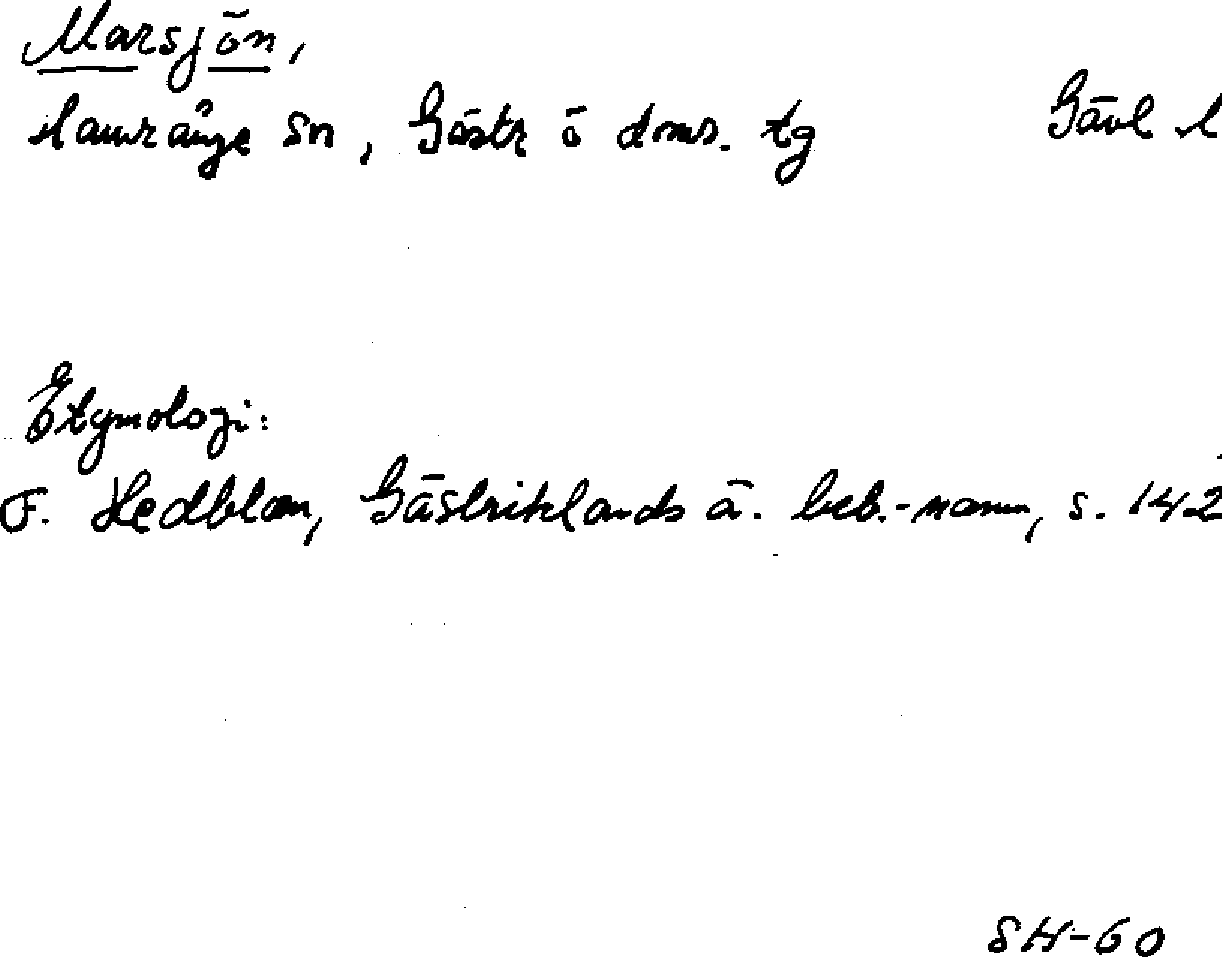 Marsjön,
Hamrånge sn, Gästr ö doms. tg Gävl l
Etymologi:
F. Hedblom, Gästriklands ä. beb.-namn, s. 142
SH-60